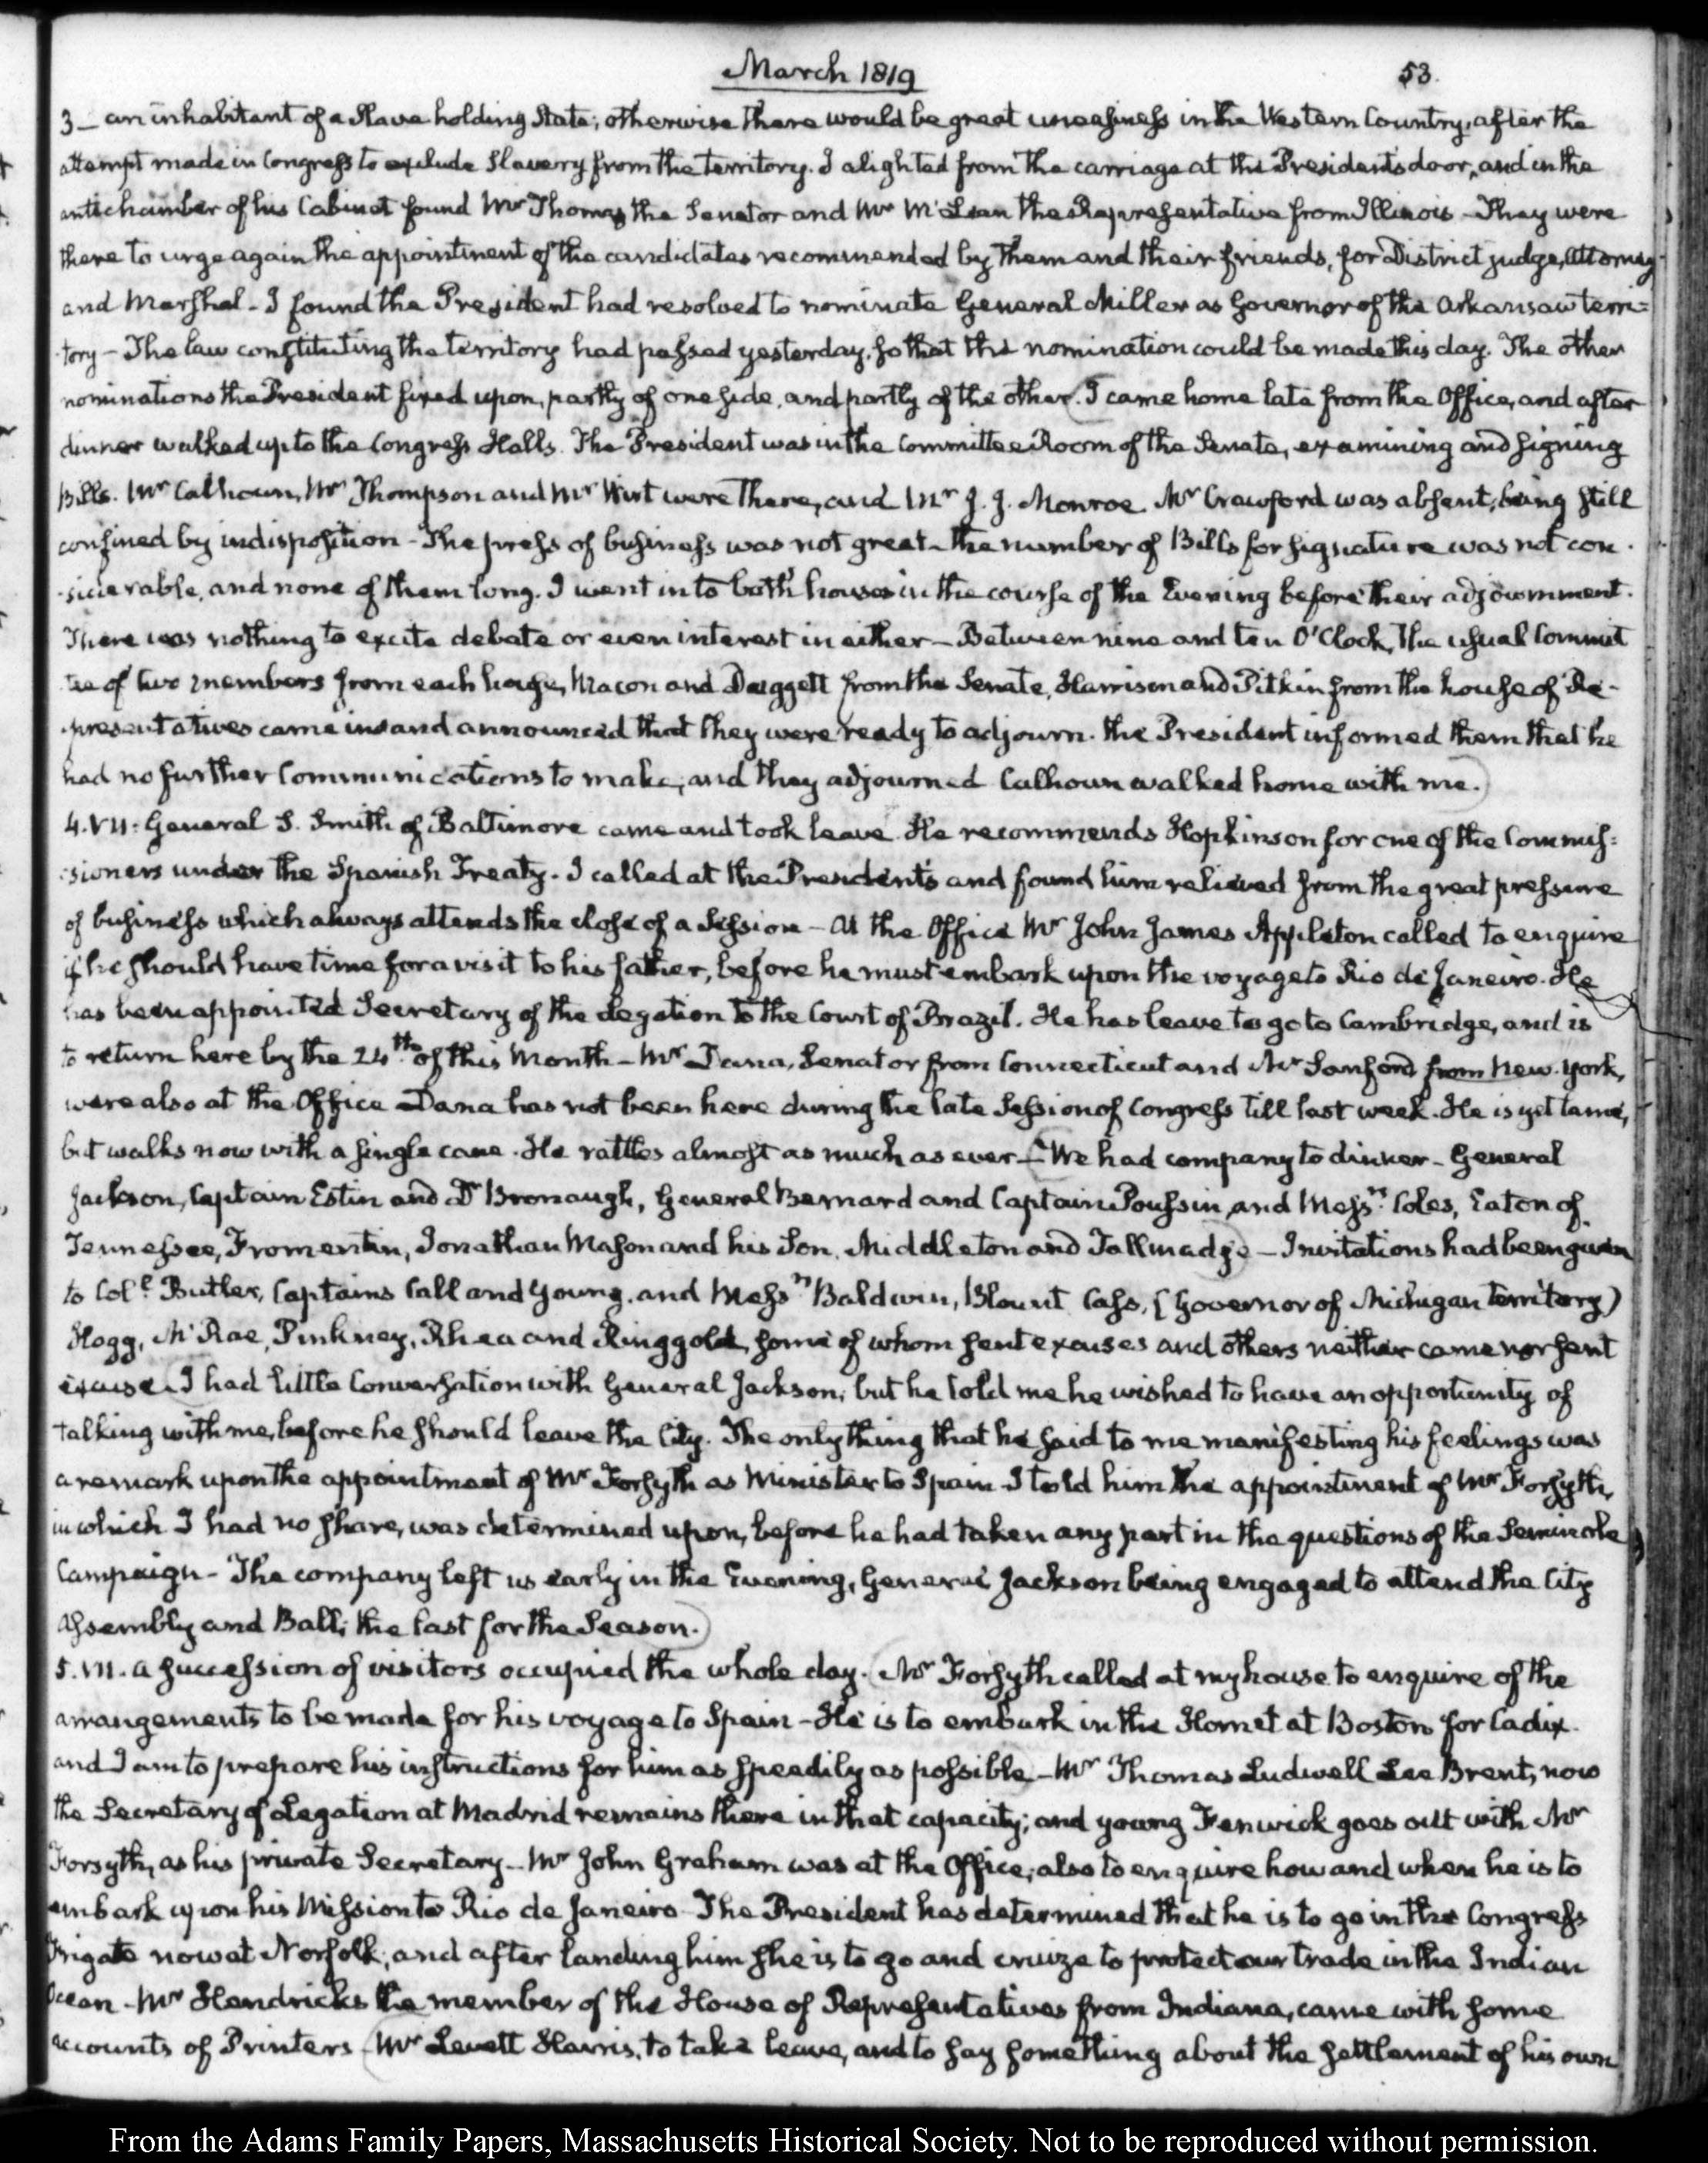 March 1819 53.
3 — an inhabitant of a Slave holding State; otherwise there would be great uneasiness in the Western Country, after the
attempt made in Congress to exclude Slavery from the territory. I alighted from the carriage at the President's door, and in the
antichamber of his Cabinet found Mr Thomas the Senator and Mr McLean the Representative from Illinois - They were
there to urge again the appointment of the candidates recommended by them and their friends, for District judge, Attorney
and Marshal - I found the President had resolved to nominate General Miller as Governor of the Arkansaw terri=
tory - The law constituting the territory had passed yesterday, so that this nomination could be made this day. The other
nominations the President fixed upon, partly of one side, and partly of the other. I came home late from the Office, and after
dinner walked up to the Congress Halls. The President was in the Committee Room of the Senate, examining and signing
Bills. Mr Calhoun, Mr Thompson and Mr Wirt were there, and Mr J. J. Monroe. Mr Crawford was absent, being still
confined by indisposition - The press of business was not great - the number of Bills for signature was not con-
siderable, and none of them long. I went into both houses in the course of the Evening before their adjournment.
There was nothing to excite debate or even interest in either - Between nine and ten O'Clock, the usual Commit
tee of two members from each house, Macon and Daggett from the Senate, Harrison and Pitkin from the house of Re-
presentatives came in and announced that they were ready to adjourn. the President informed them that he
had no further Communications to make, and they adjourned Calhoun walked home with me.
4. VII: General S. Smith of Baltimore came and took leave. He recommends Hopkinson for one of the Commis=
sioners under the Spanish Treaty - I called at the President's and found him relieved from the great pressure
of business which always attends the close of a Session - At the Office Mr John James Appleton called to enquire
if he should have time for a visit to his father, before he must embark upon the voyage to Rio de Janeiro. He
has been appointed Secretary of the legation to the Court of Brazil. He has leave to go to Cambridge, and is
to return here by the 24th of this Month - Mr Dana, Senator from Connecticut and Mr Sanford from New York,
were also at the Office Dana has not been here during the late Session of Congress till last week. He is yet lame,
but walks now with a single cane. He rattles almost as much as ever - We had company to dinner - General
Jackson, Captain Estin and Dr Bronaugh, General Bernard and Captain Poussin, and Messrs Coles, Eaton of
Tennessee, Fromentin, Jonathan Mason and his Son, Middleton and Tallmadge - Invitations had been given
to Coll Butler, Captains Call and Young, and Messrs Baldwin, Blount Cass, (Governor of Michigan territory)
Hogg, McRae, Pinkney, Rhea and Ringgold, some of whom sent excuses and others neither came nor sent
excuse. I had little Conversation with General Jackson, but he told me he wished to have an opportunity of
talking with me, before he should leave the City. The only thing that he said to me manifesting his feelings was
a remark upon the appointment of Mr Forsyth as Minister to Spain - I told him the appointment of Mr Forsyth,
in which I had no share, was determined upon, before he had taken any part in the questions of the Seminole
Campaign - The company left us early in the Evening, General Jackson being engaged to attend the City
Assembly and Ball; the last for the Season.
5. VII. A succession of visitors occupied the whole day. Mr Forsyth called at my house to enquire of the
arrangements to be made for his voyage to Spain - He is to embark in the Hornet at Boston for Cadix
and I am to prepare his instructions for him as speedily as possible - Mr Thomas Ludwell Lee Brent, now
the Secretary of Legation at Madrid remains there in that capacity; and young Fenwick goes out with Mr
Forsyth, as his private Secretary - Mr John Graham was at the Office, also to enquire how and when he is to
embark upon his Mission to Rio de Janeiro The President has determined that he is to go in the Congress
Frigate now at Norfolk; and after landing him she is to go and cruize to protect our trade in the Indian
Ocean - Mr Hendricks the member of the House of Representatives from Indiana, came with some
accounts of Printers - Mr Levett Harris, to take leave, and to say something about the settlement of his own
From the Adams Family Papers, Massachusetts Historical Society. Not to be reproduced without permission.